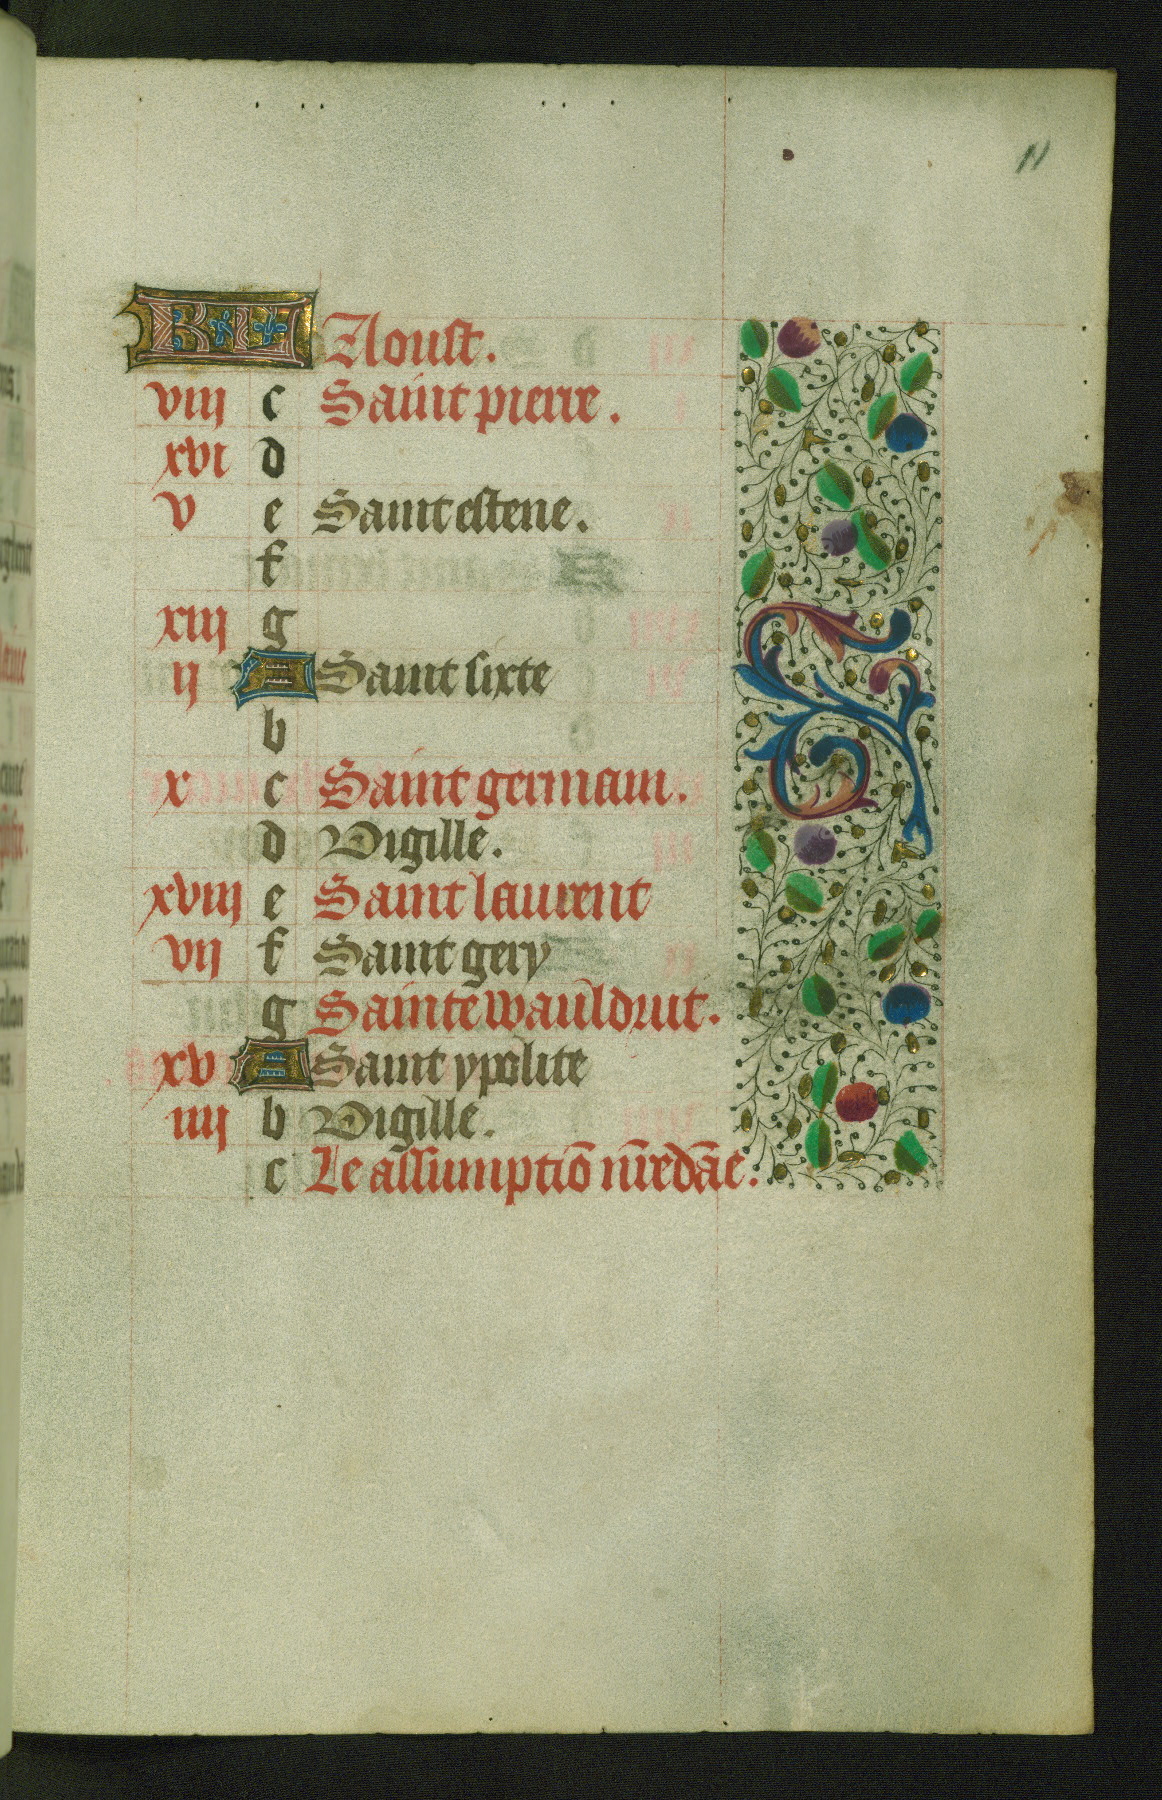 11
KL Aoust.
viii c Saint pierre.
xvi d
v e Saint estene.
f
xiii g
ii A Saint sixte
b
x c Saint germain.
d Vigille.
xviii e Saint laurent
vii f Saint gery
g Sainte wauldrut.
xv A Saint ypolite
iiii b Vigille.
c Le assumptiō nr̄edāe.